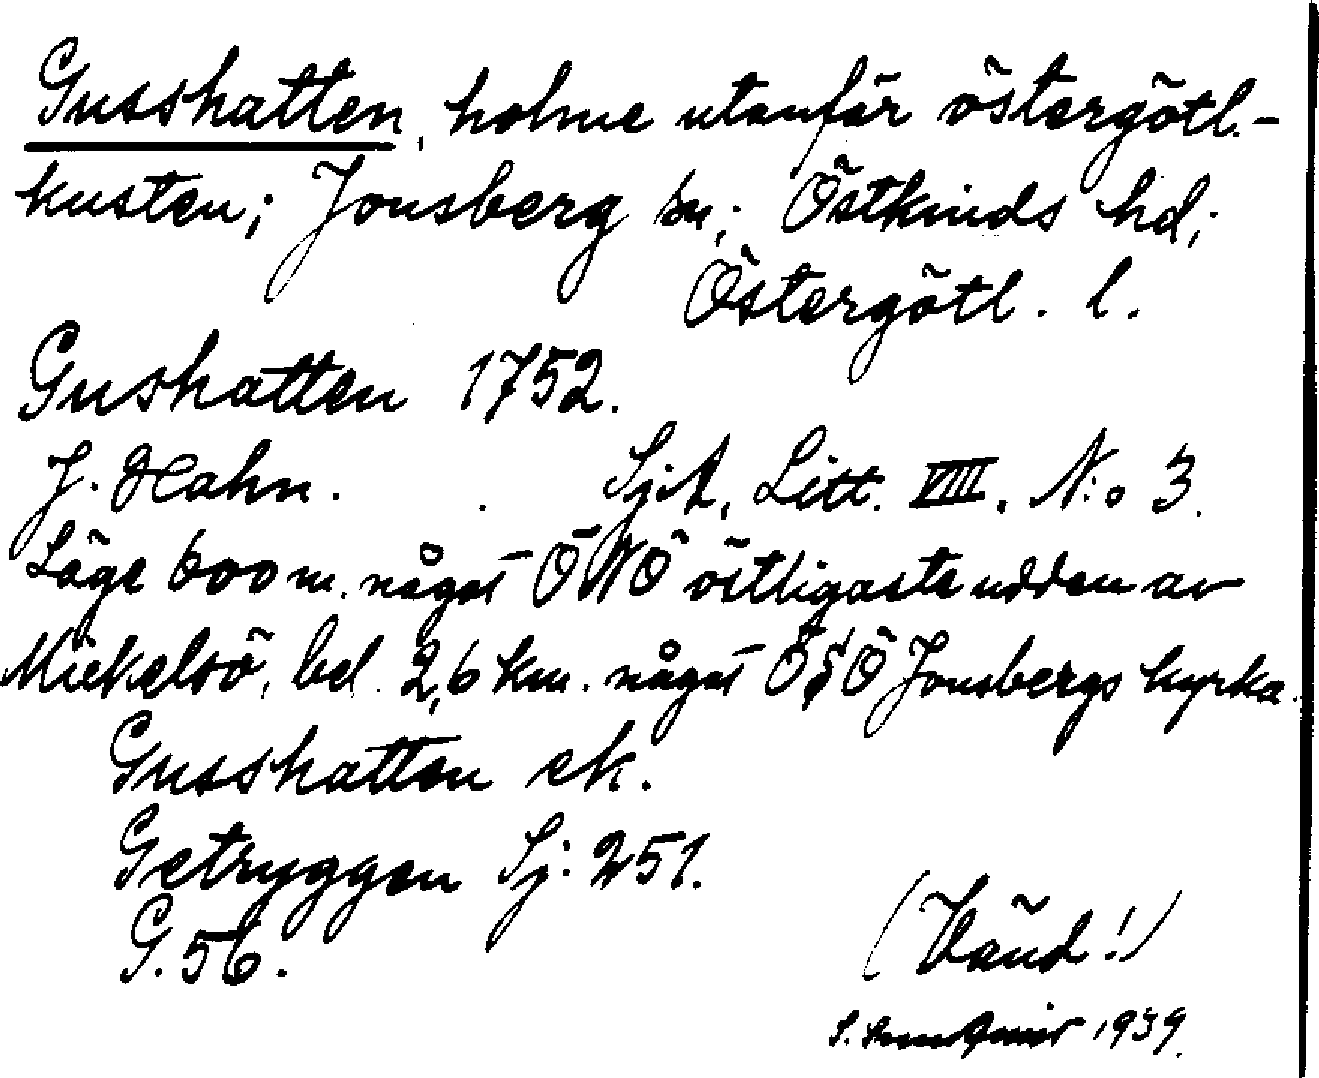 Gusshatten, holme utanför östergötl.-
kusten; Jonsberg sn; Östkinds hd;
Östergötl. l.
Gushatten 1752.
J. Hahn. SjkA, Litt. VIII. N:o 3.
Läge 600 m. något ÖNÖ östligaste udden av
Mickelsö, bel. 2,6 km. något ÖSÖ Jonsbergs kyrka.
Gusshatten ek.
Getryggen Sj: 251.
G. 56.
(Vänd!)
S. 1939.